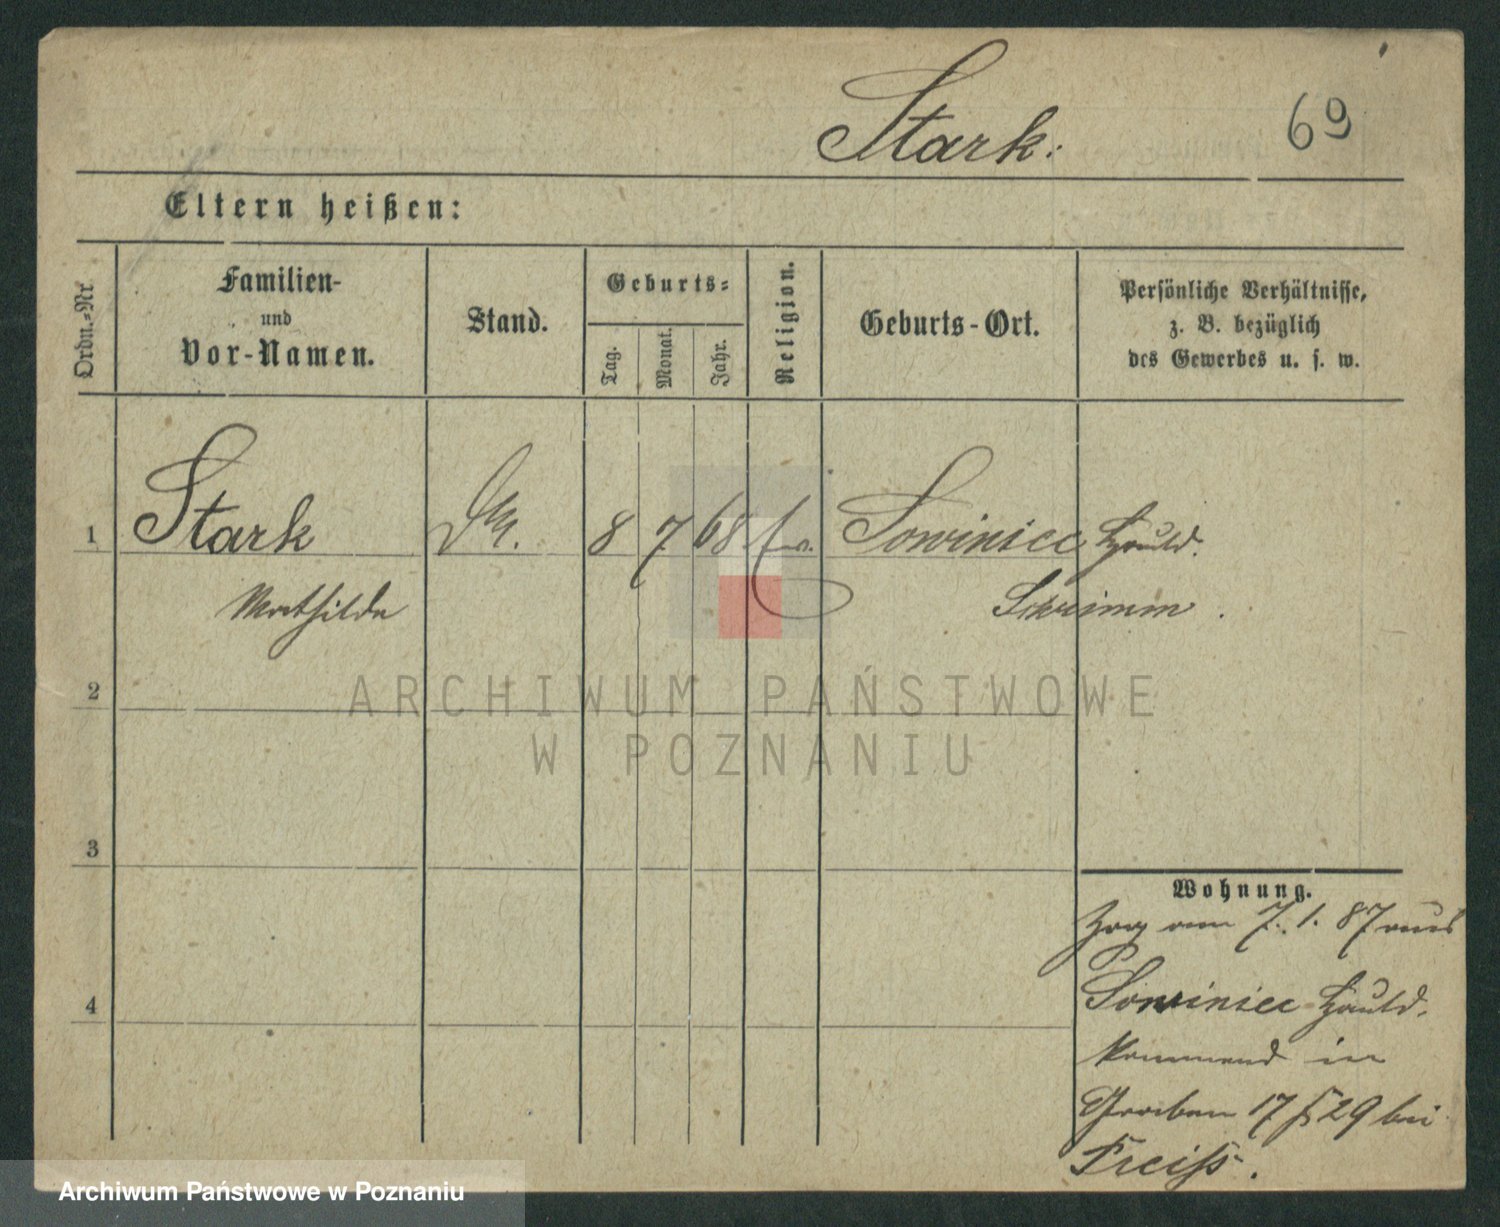 Stark.
69
Eltern heißen:
Ordn.-Nr
Familien-
und
Vor-Namen.
Stand.
Geburts-
Tag.
Monat.
Jahr.
Religion.
Geburts-Ort.
Persönliche Verhältnisse,
z. B. bezüglich
des Gewerbes u. s. w.
1 Stark 8 7 68 ev. Sowiniec Hauld.
Mathilde Schrimm.
2
ARCHIWUM PAŃSTWOWE
W POZNANIU
3
4
Wohnung.
Zog am 7.1.87 aus
Sowiniec Hauld.
kommend in
Graben 17 29 bei
Preiss.
Archiwum Państwowe w Poznaniu